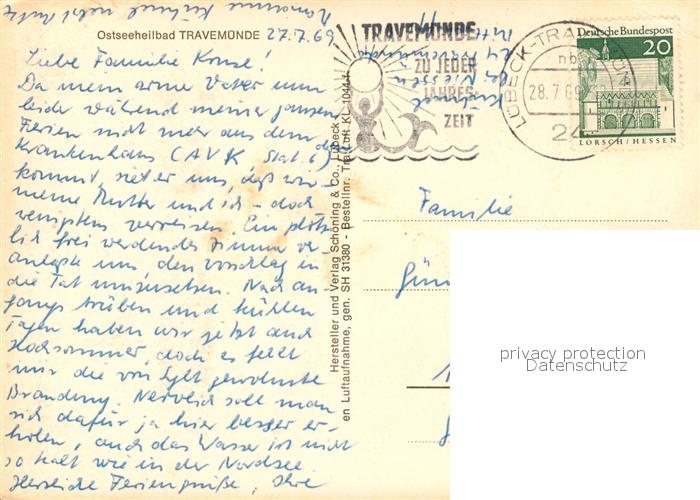 Ostseeheilbad TRAVEMÜNDE 27.7.69
Liebe Familie
Da mein armer Vater nun
leider während meiner ganzen
Ferien nicht mehr aus dem
Krankenhaus (AVK Stat. 6)
kommt, riet er uns, daß wir –
meine Mutter und ich – doch
wenigstens verreisen. Ein plötz-
lich frei werdendes Zimmer ver-
anlaßte uns, den Vorschlag in
die Tat umzusetzen. Nach an-
fangs trüben und kühlen
Tagen haben wir jetzt auch
Hochsommer, doch es fehlt
mir die von Sylt gewohnte
Brandung. Nervlich soll man
sich dafür ja hier besser er-
holen, auch das Wasser ist nicht
so kalt wie in der Nordsee.
Herzliche Feriengrüße, Ihre
Hersteller und Verlag Schöning & Co., Lübeck
en Luftaufnahme, gen. SH 31380 - Bestellnr. Trav. Luft. Kl. 1044
TRAVEMÜNDE
ZU JEDER
JAHRES-
ZEIT
LÜBECK-TRA
28.7.69
24
Deutsche Bundespost
20
LORSCH/HESSEN
Familie
privacy protection
Datenschutz